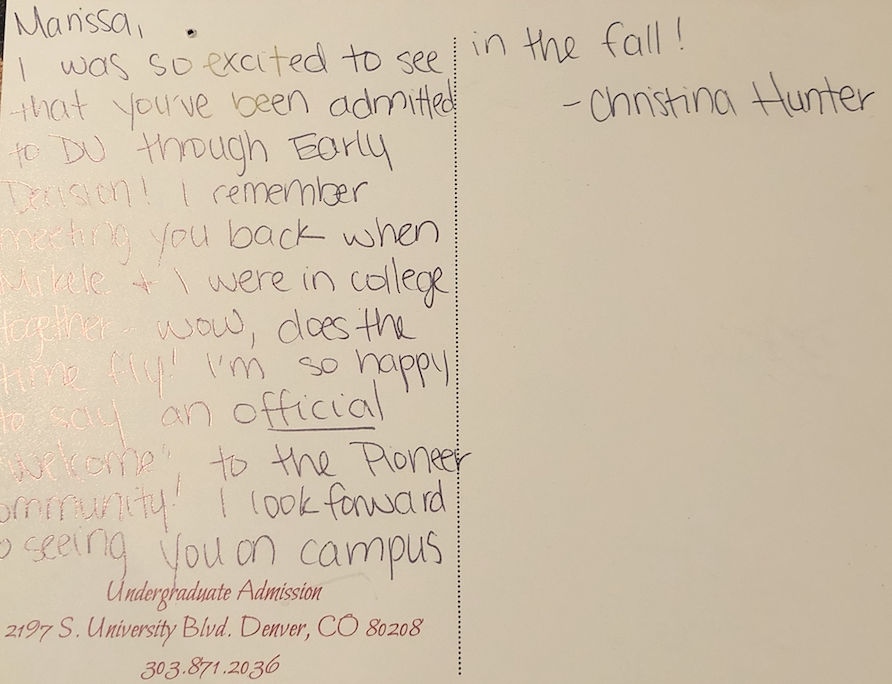 Marissa,
I was so excited to see
that you've been admitted
to DU through Early
Decision! I remember
meeting you back when
Mikele + I were in college
together - wow, does the
time fly! I'm so happy
to say an official
"welcome" to the Pioneer
ommunity! I look forward
o seeing you on campus
in the fall!
- Christina Hunter
Undergraduate Admission
2197 S. University Blvd. Denver, CO 80208
303.871.2036